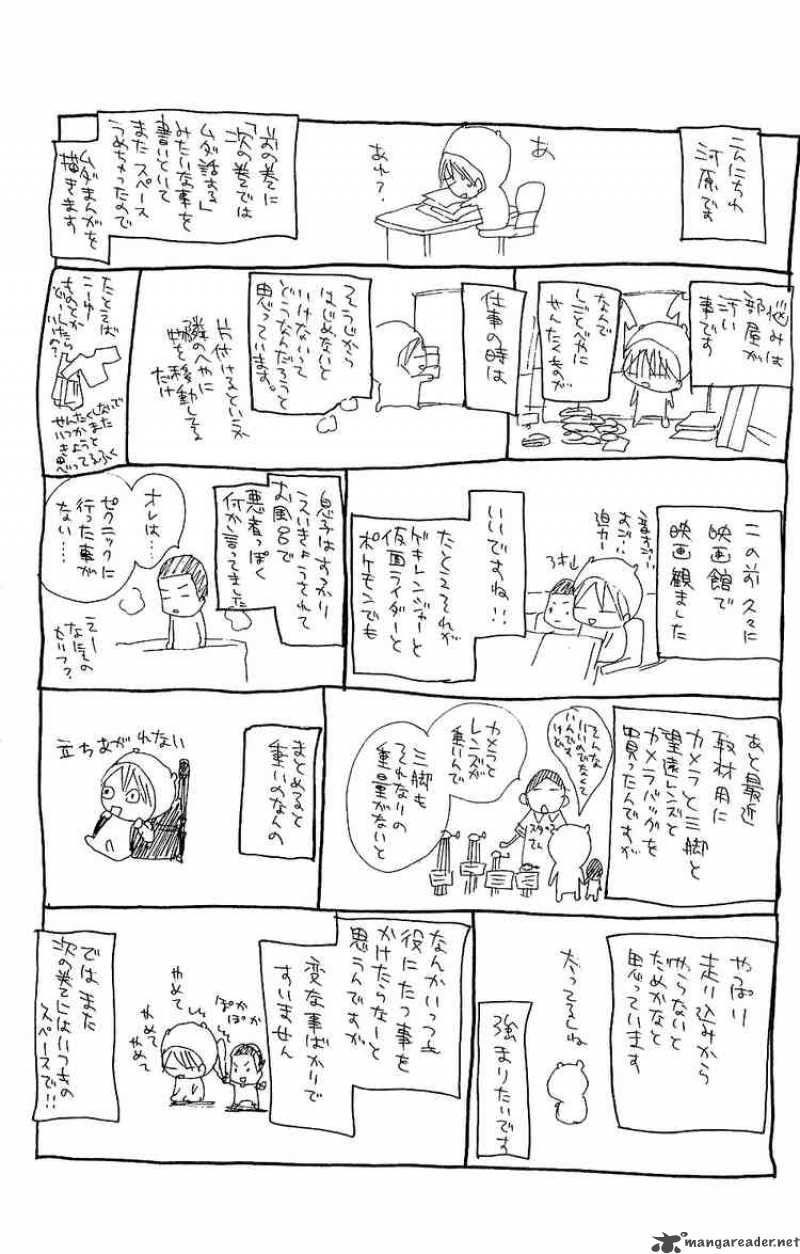 こんにちわ
河原です
あ
あれ?
前の巻に
「次の巻では
ムダ話ある」
みたいな事を
書いといて
またスペース
うめちゃったので
ムダまんがを
描きます
悩みは
部屋が
汚い
事です
なんで
しごとべやに
せんたくものが
仕事の時は
そうじから
はじめないと
いけないって
どうなんだろうと
思っています。
片付けるというか
隣のへやに
物を移動してる
だけ
たとえば
こーゆー
ものとか
どーしたら
いい?
この前久々に
映画館で
映画観ました
迫力
いいですね!!
たとえそれが
ゲキレンジャーと
仮面ライダーと
ポケモンでも
息子はすっかり
えいきょうされて
お風呂で
悪者っぽく
何か言ってました
オレは…
ピクニックに
行った事が
ない…
えー
なにその
せりふ?
あと最近
取材用に
カメラと三脚と
望遠レンズと
カメラバッグを
買ったんですが
そんな
いいのでなくて
いいんです
けど
カメラと
レンズが
重いんで
三脚も
それなりの
重量がないと
まとめると
重いのなんの
立ちあがれない
やっぱり
走り込みから
やらないと
だめかなと
思っています
太ってるしね
強まりたいです
なんかいつも
役にたつ事を
かけたらなーと
思うんですが
変な事ばかりで
すいません
ぽかぽか
やめて
やめて
やめて
ではまた
次の巻にはいつもの
スペースで!!
mangareader.net